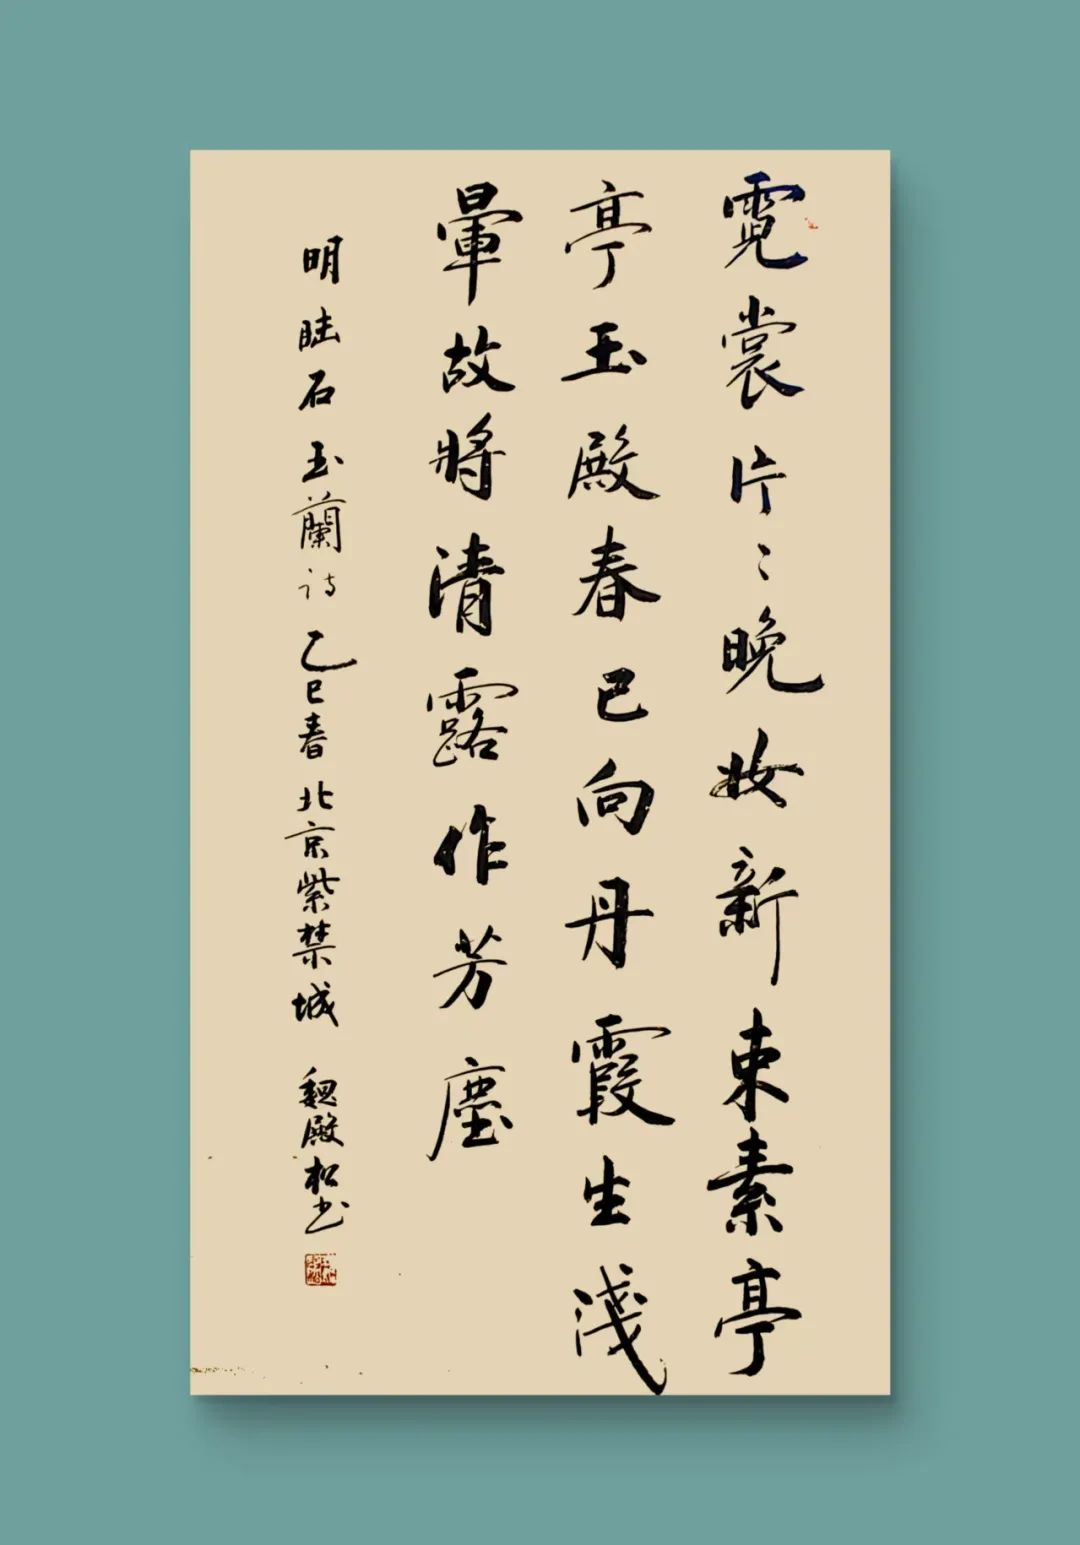 霓裳片〻晚妆新束素亭
亭玉殿春已向丹霞生淺
暈故將清露作芳塵
明眭石玉蘭诗乙巳春北京紫禁城 魏殿松书